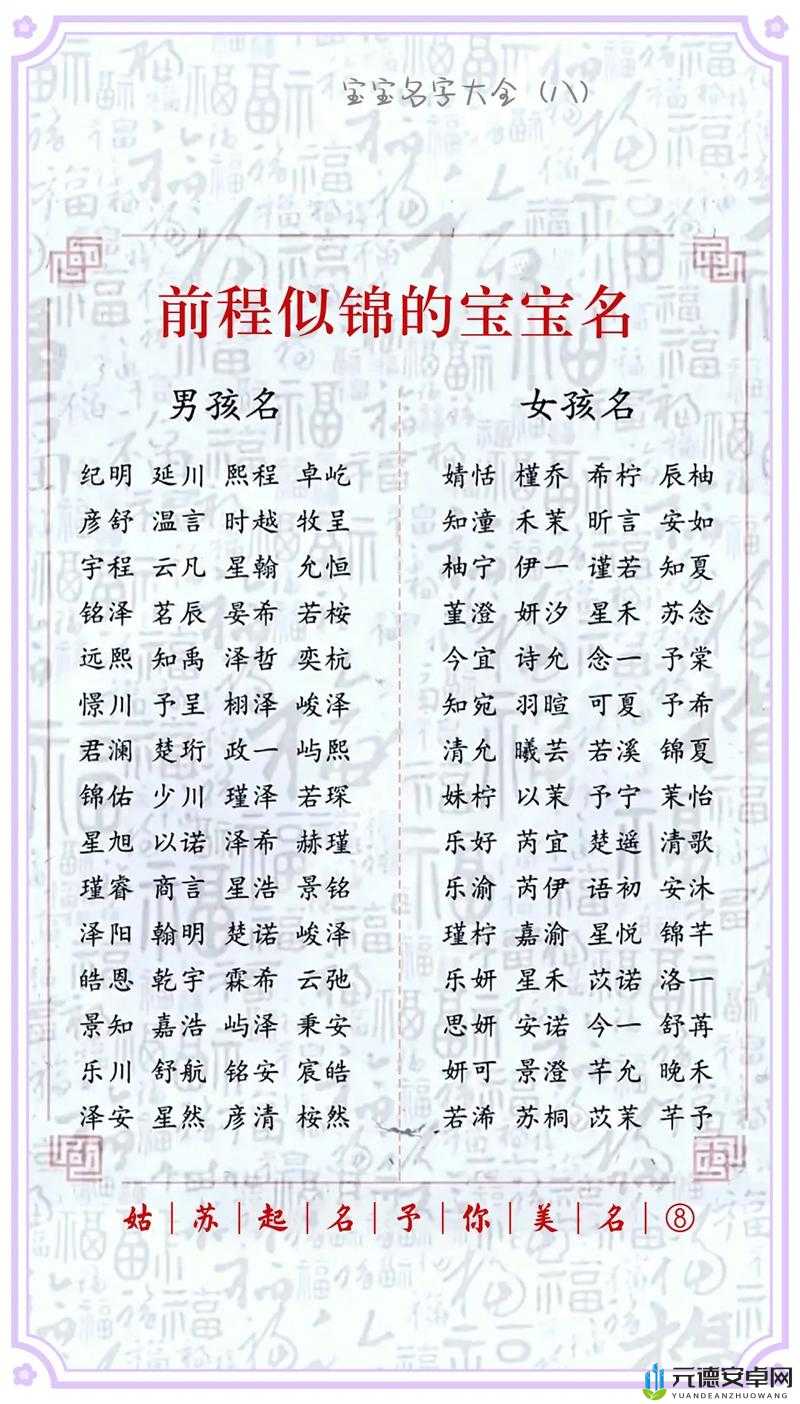 宝宝名字大全（八）
前程似锦的宝宝名
男孩名
纪明 延川 熙程 卓屹
彦舒 温言 时越 牧呈
宇程 云凡 星翰 允恒
铭泽 茗辰 晏希 若桉
远熙 知禹 泽哲 奕杭
憬川 予呈 栩泽 峻泽
君澜 楚珩 政一 屿熙
锦佑 少川 瑾泽 若琛
星旭 以诺 泽希 赫瑾
瑾睿 商言 星浩 景铭
泽阳 翰明 楚诺 峻泽
皓恩 乾宇 霖希 云弛
景知 嘉浩 屿泽 秉安
乐川 舒航 铭安 宸皓
泽安 星然 彦清 桉然
女孩名
婧恬 槿乔 希柠 辰柚
知潼 禾茉 昕言 安如
柚宁 伊一 谨若 知夏
堇澄 妍汐 星禾 苏念
今宜 诗允 念一 予棠
知宛 羽暄 可夏 予希
清允 曦芸 若溪 锦夏
妹柠 以茉 予宁 茉怡
乐好 芮宜 楚遥 清歌
乐渝 芮伊 语初 安沐
瑾柠 嘉渝 星悦 锦芊
乐妍 星禾 苡诺 洛一
思妍 安诺 今一 舒苒
妍可 景澄 芊允 晚禾
若浠 苏桐 苡茉 芊予
姑|苏|起|名|予|你|美|名|⑧
元德安卓网
YUANDEANZHUOWANG